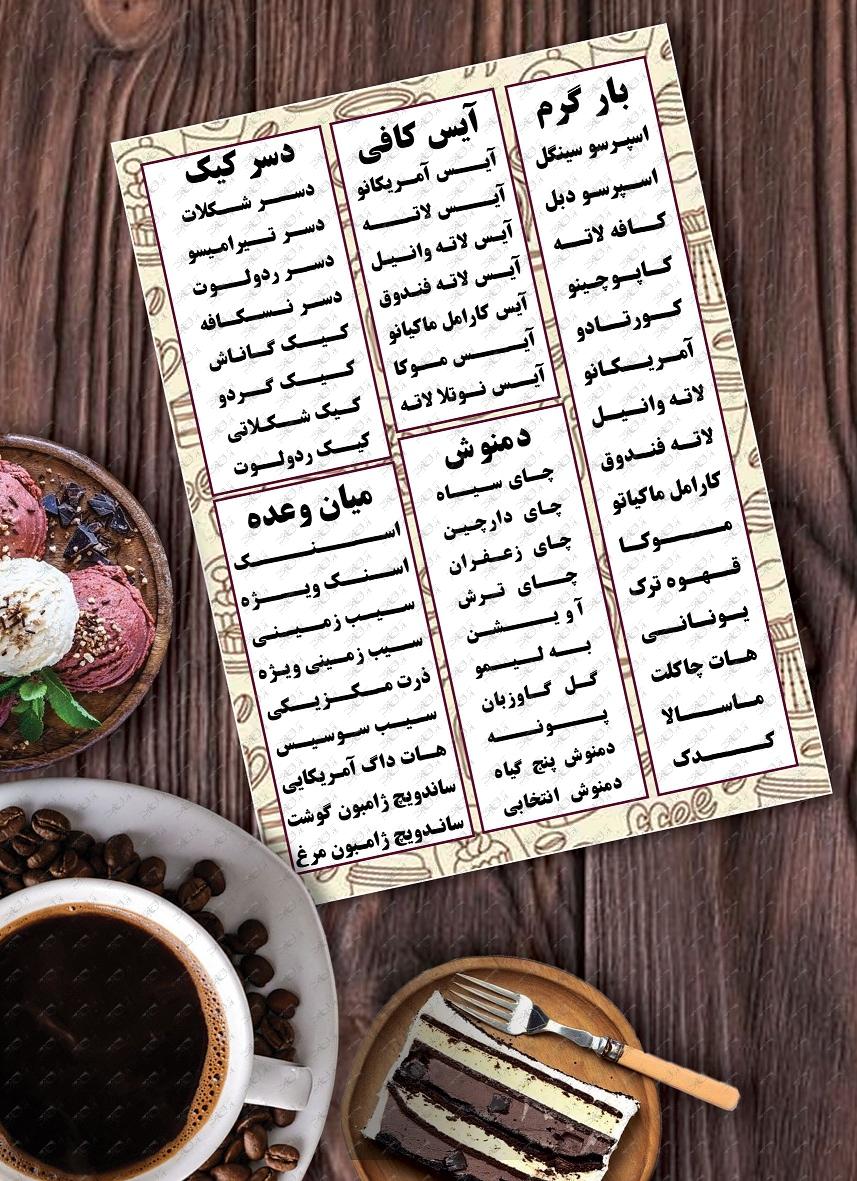 بار گرم
اسپرسو سینگل
اسپرسو دبل
کافه لاته
کاپوچینو
کورتادو
آمریکانو
لاته وانیل
لاته فندوق
کارامل ماکیاتو
موکا
قهوه ترک
یونانی
هات چاکلت
ماسالا
کدک
آیس کافی
آیس آمریکانو
آیس لاته
آیس لاته وانیل
آیس لاته فندوق
آیس کارامل ماکیاتو
آیس موکا
آیس نوتلا لاته
دمنوش
چای سیاه
چای دارچین
چای زعفران
چای ترش
آویشن
به لیمو
گل گاوزبان
پونه
دمنوش پنج گیاه
دمنوش انتخابی
دسر کیک
دسر شکلات
دسر تیرامیسو
دسر ردولوت
دسر نسکافه
کیک گاناش
کیک گردو
کیک شکلاتی
کیک ردولوت
میان وعده
اسنک
اسنک ویژه
سیب زمینی
سیب زمینی ویژه
ذرت مکزیکی
سیب سوسیس
هات داگ آمریکایی
ساندویچ ژامبون گوشت
ساندویچ ژامبون مرغ